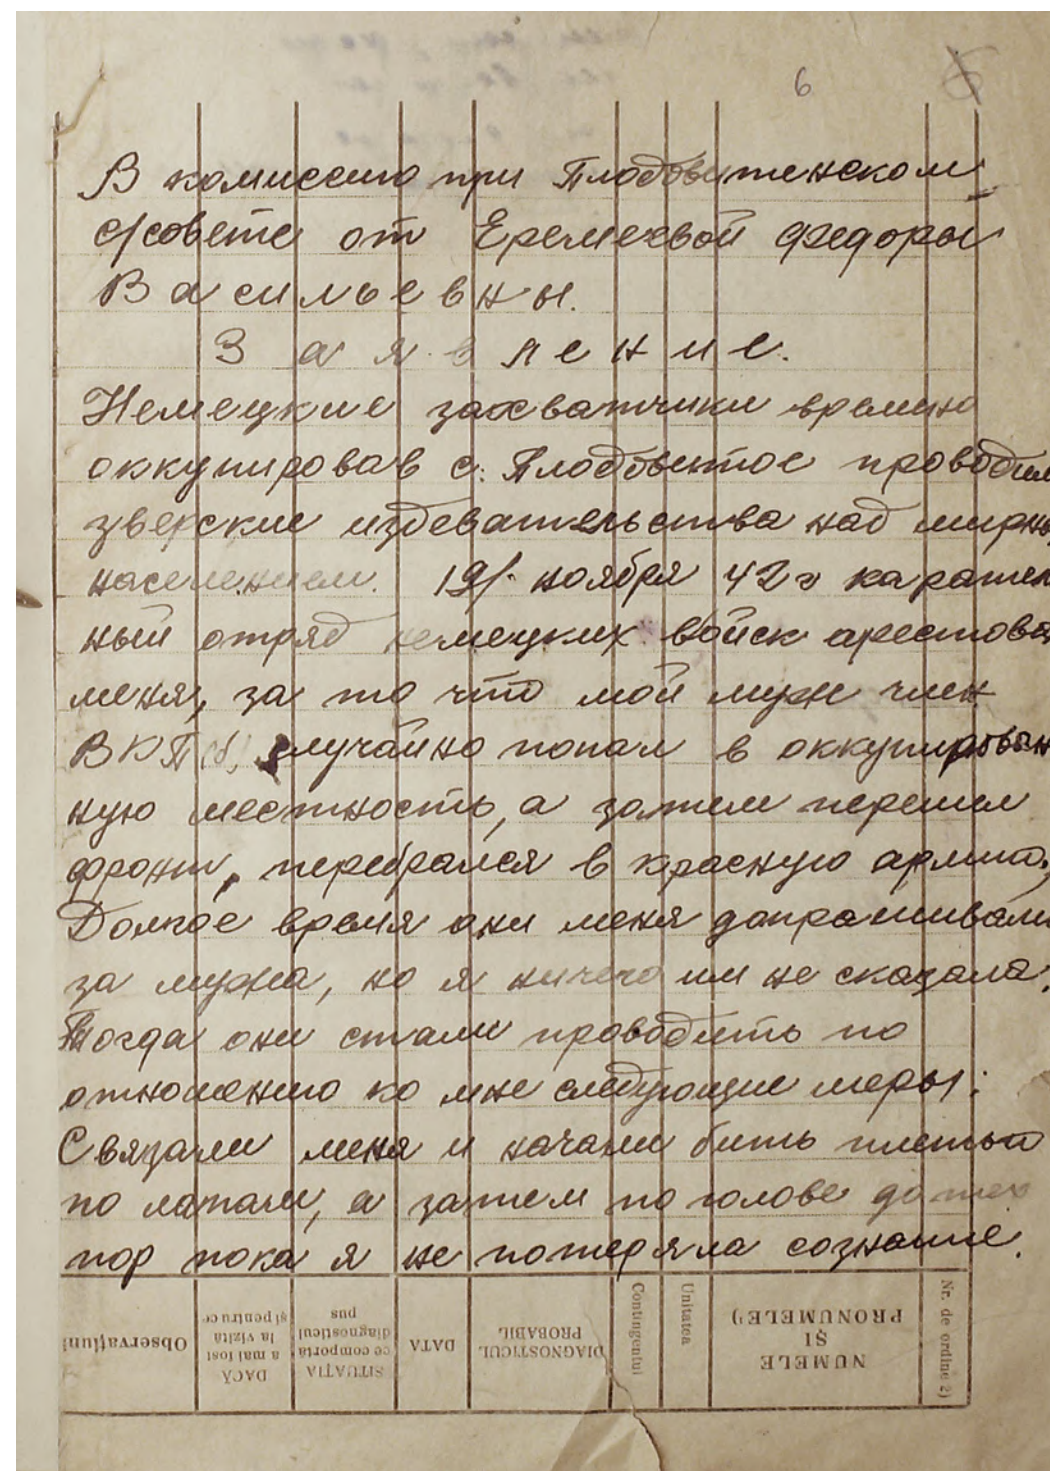 6
В комиссию при Плодовитенском
с/совете от Еремеевой Федоры
Васильевны.
Заявление.
Немецкие захватчики времено
оккупировав с. Плодовитое проводил
зверские издевательства над мирны
населением. 19/. ноября 42 г каратель
ный отряд немецких войск арестовал
меня, за то что мой муж член
ВКП(б), случайно попал в оккупирован
ную местность, а затем перешел
фронт, перебрался в красную армию,
Долгое время они меня допрашивали
за мужа, но я ничего им не сказала.
Тогда они стали проводить по
отношению ко мне следующие меры:
Связали меня и начали бить плетью
по лапам, а затем по голове до тех
пор пока я не потеряла сознание.
Nr. de ordine 2)
NUMELE
ȘI
PRONUMELE¹)
Unitatea
Contingentul
DIAGNOSTICUL
PROBABIL
DATA
SITUAȚIA
ce comportă
diagnosticul
pus
DACĂ
a mai fost
la vizită
și pentru ce
Observațiuni